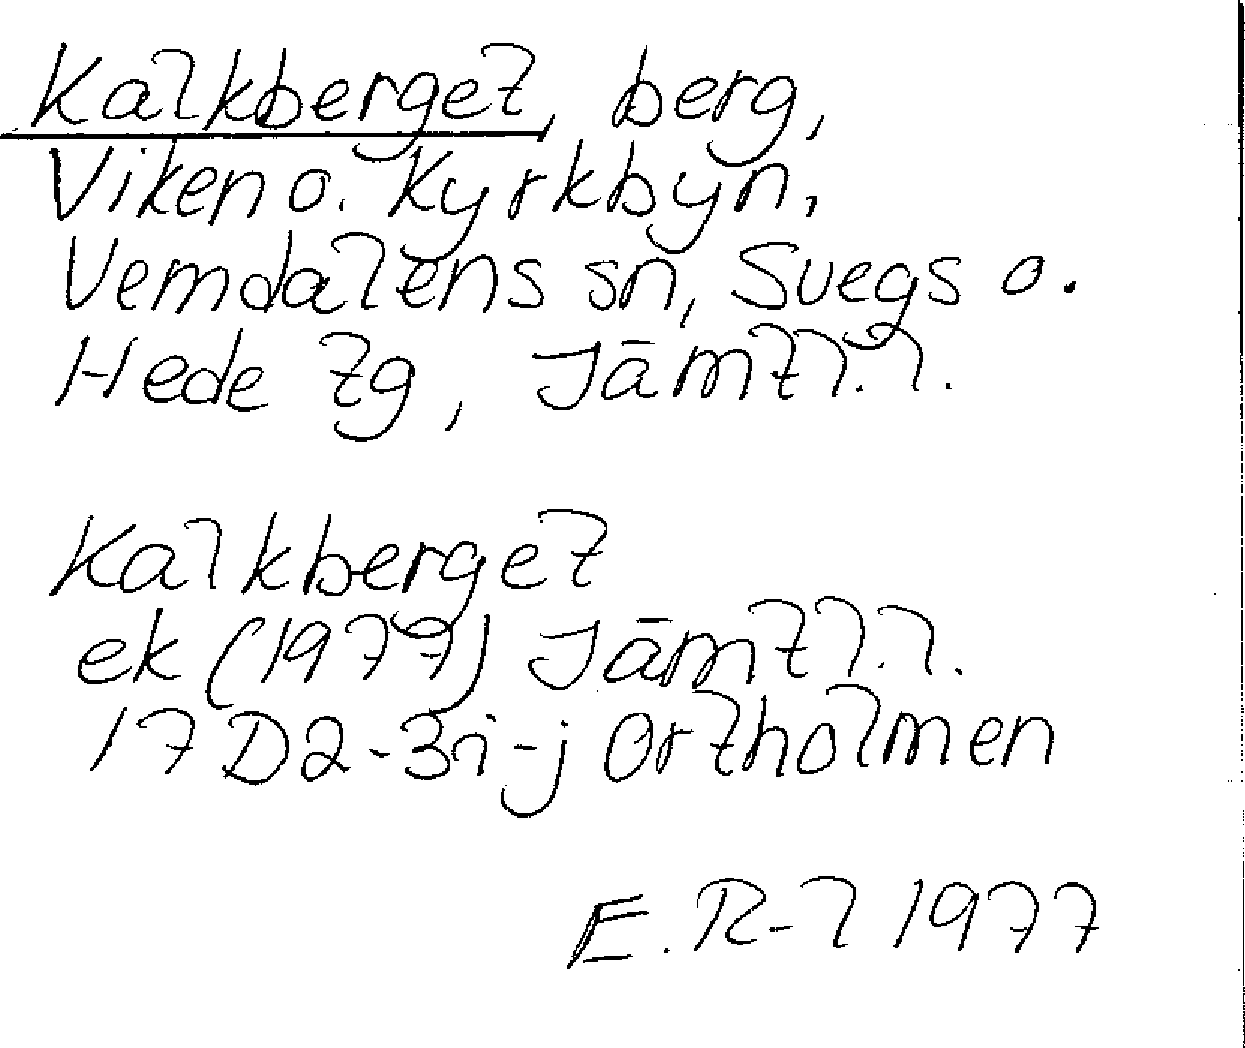 Kalkberget, berg,
Viken o. Kyrkbyn,
Vemdalens sn, Svegs o.
Hede tg, Jämtl. l.
Kalkberget
ek (1977) Jämtl. l.
17 D2-3i-j Ortholmen
E. R-l 1977